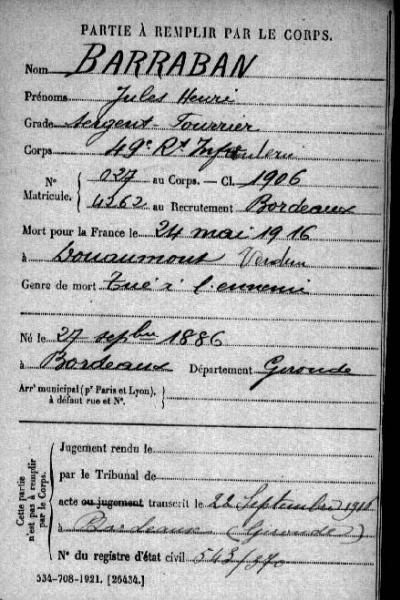 PARTIE À REMPLIR PAR LE CORPS.
Nom BARRABAN
Prénoms Jules Henri
Grade Sergent-Fourrier
Corps 49e Rt Infanterie
No 027 au Corps. — Cl. 1906
Matricule. 4362 au Recrutement Bordeaux
Mort pour la France le 24 mai 1916
à Douaumont Verdun
Genre de mort Tué à l'ennemi
Né le 27 septbre 1886
à Bordeaux Département Gironde
Arrt municipal (pr Paris et Lyon),
à défaut rue et No.
Cette partie
n'est pas à remplir
par le Corps.
Jugement rendu le
par le Tribunal de
acte ou jugement transcrit le 22 Septembre 1916
à Bordeaux (Gironde)
No du registre d'état civil 543/270
534-708-1921. [26434.]